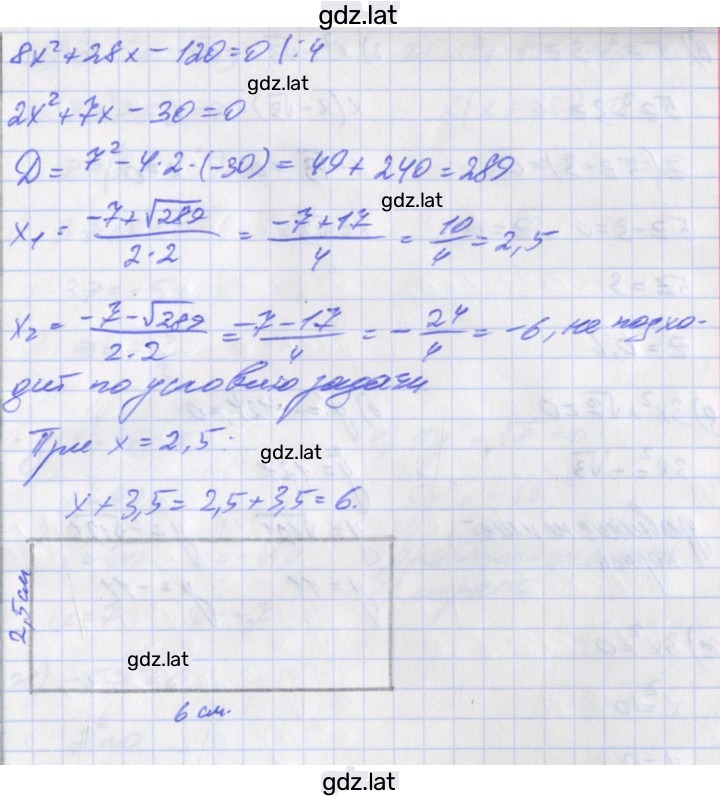 gdz.lat
8x² + 28x − 120 = 0 | : 4
gdz.lat
2x² + 7x − 30 = 0
D = 7² − 4·2·(−30) = 49 + 240 = 289
gdz.lat
x₁ = (−7+√289)/(2·2) = (−7+17)/4 = 10/4 = 2,5
x₂ = (−7−√289)/(2·2) = (−7−17)/4 = −24/4 = −6, не подхо-
дит по условию задачи
При x = 2,5:
gdz.lat
x + 3,5 = 2,5 + 3,5 = 6.
2,5 см
gdz.lat
6 см.
gdz.lat